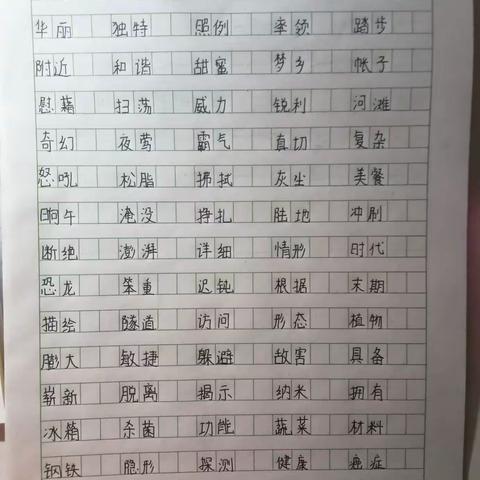 华丽 独特 照例 率领 踏步
附近 和谐 甜蜜 梦乡 帐子
慰藉 扫荡 威力 锐利 河滩
奇幻 夜莺 霸气 真切 复杂
怒吼 松脂 拂拭 灰尘 美餐
晌午 淹没 挣扎 陆地 冲刷
断绝 澎湃 详细 情形 时代
恐龙 笨重 迟钝 根据 末期
描绘 隧道 访问 形态 植物
膨大 敏捷 躲避 敌害 具备
崭新 脱离 揭示 纳米 拥有
冰箱 杀菌 功能 蔬菜 材料
钢铁 隐形 探测 健康 癌症